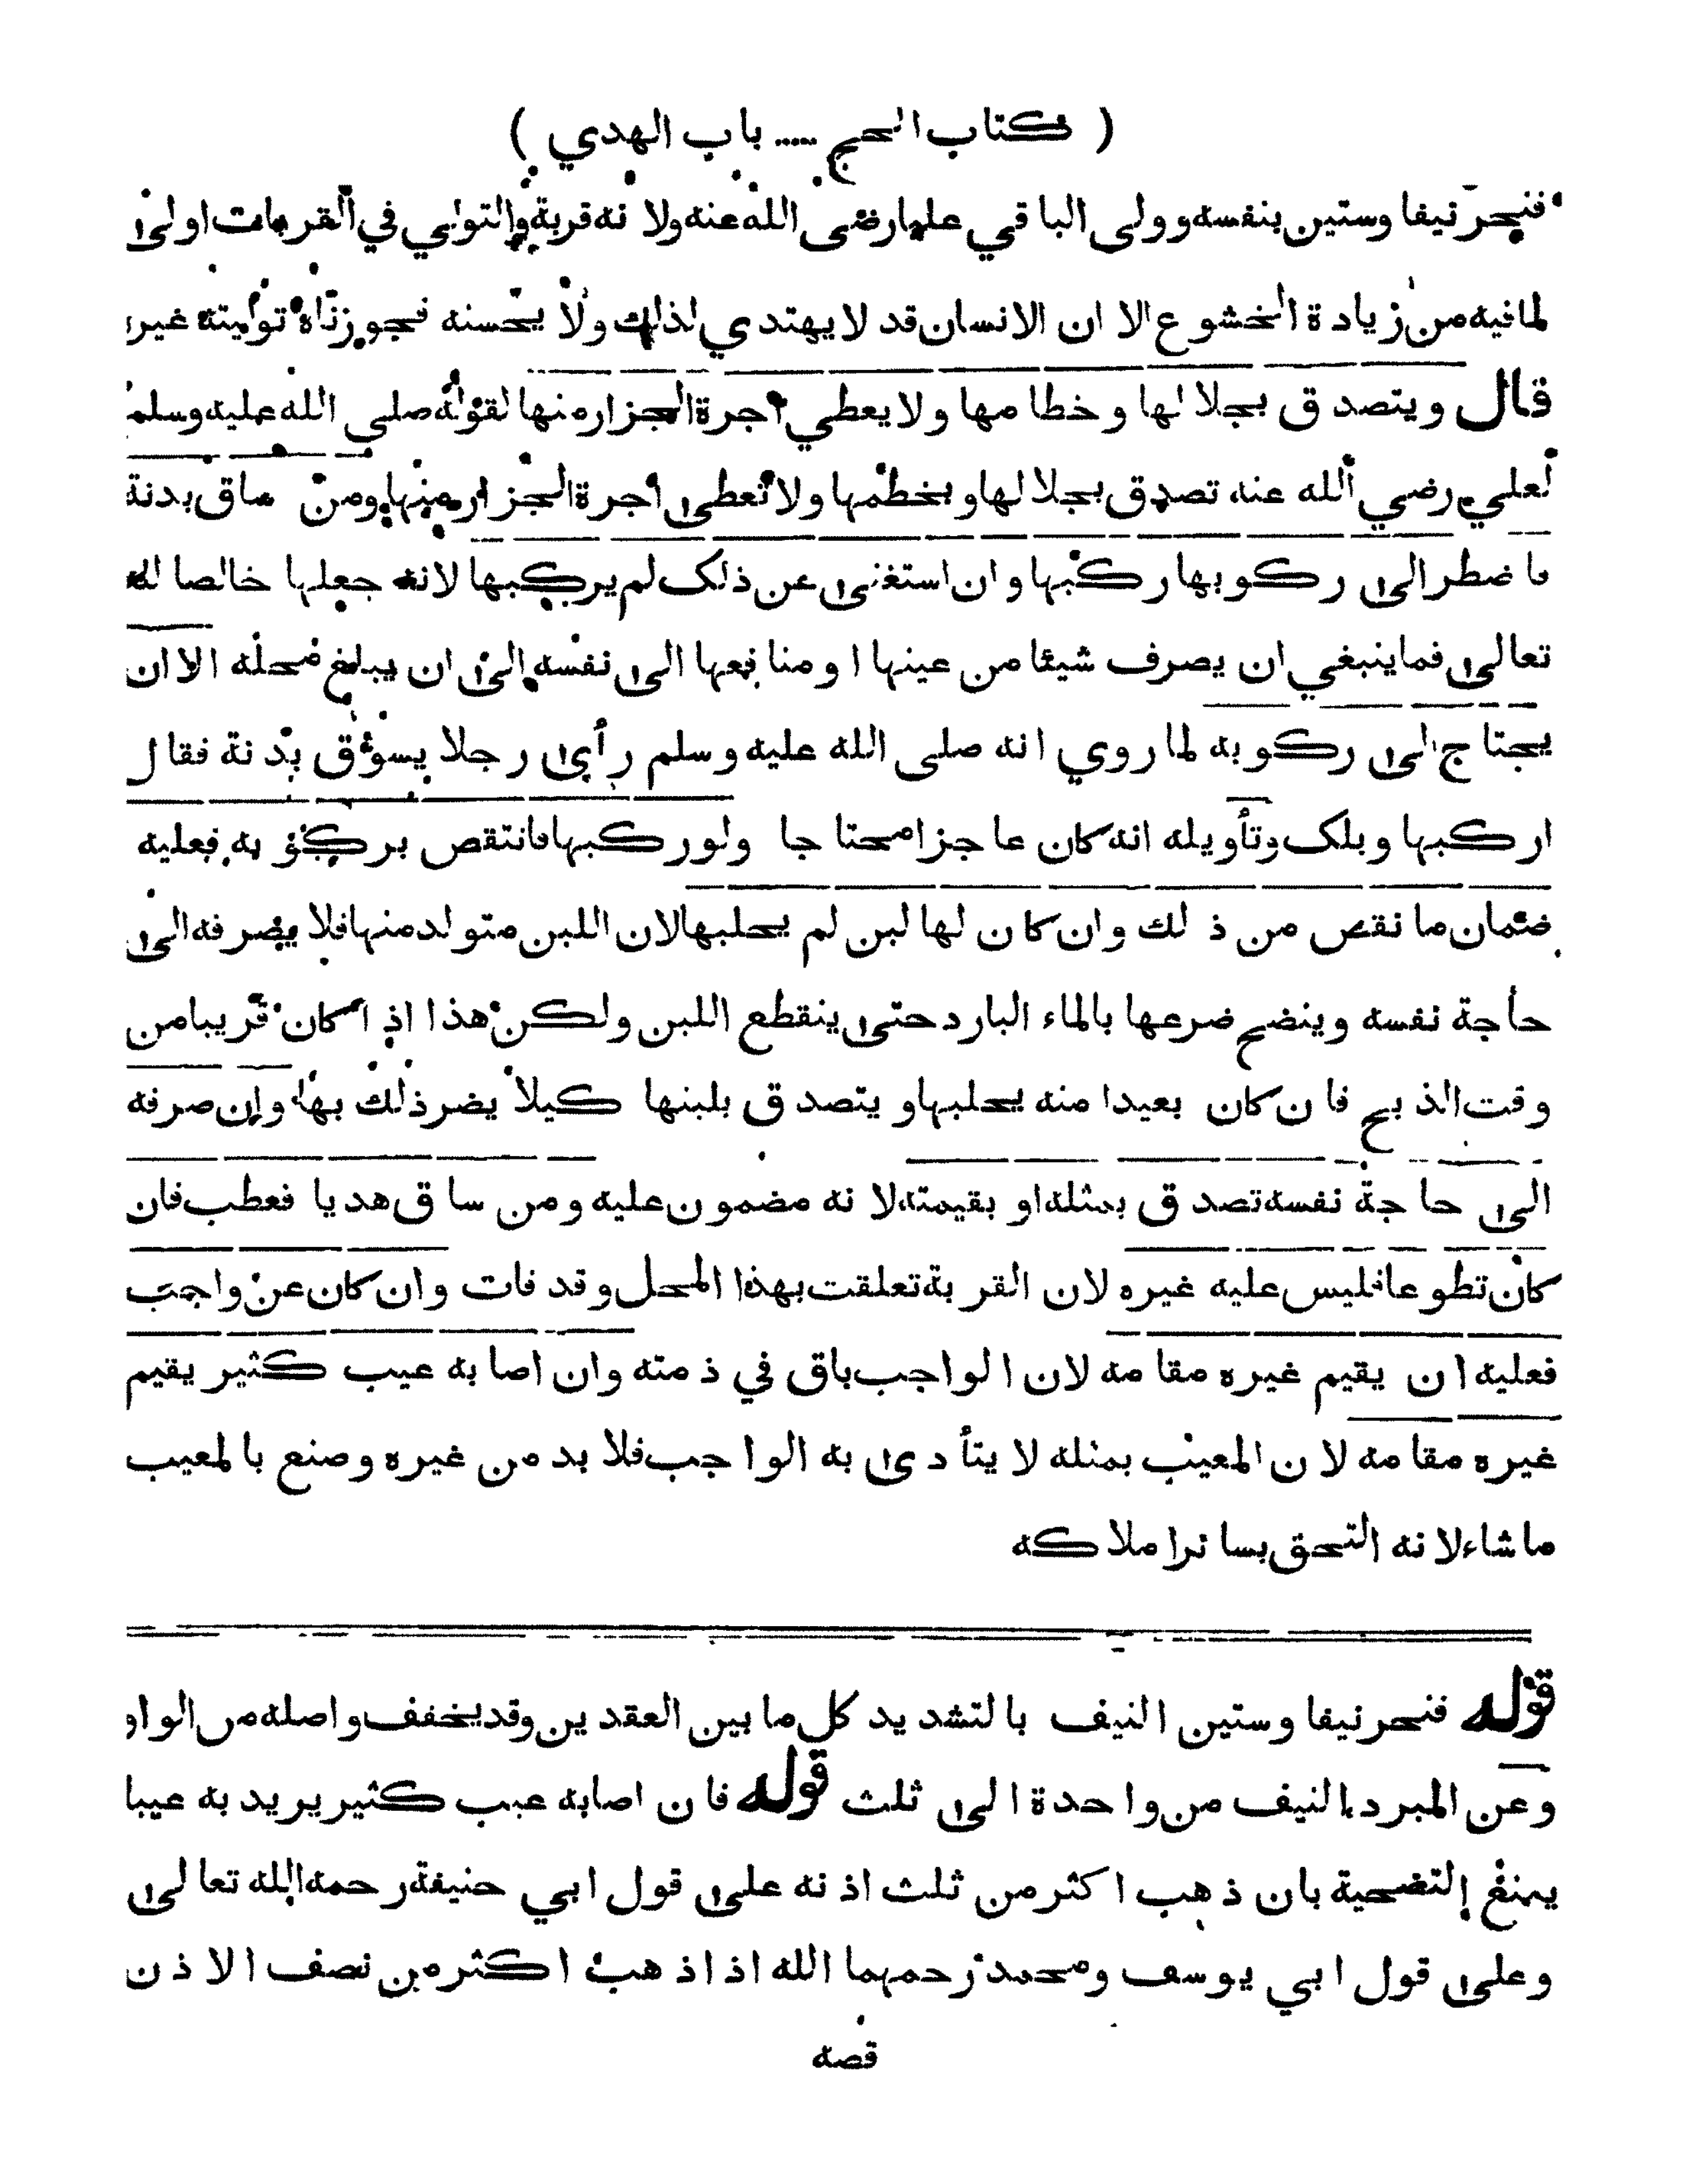 ( كتاب الحج ..... باب الهدي )
فنحر نيفا وستين بنفسه وولى الباقي عليا رضى الله عنه ولانه قربة والتولي في القربات اولى
لما فيه من زيادة الخشوع الا ان الانسان قد لا يهتدي لذلك ولا يحسنه فجوزناه توليته غيره
قال ويتصدق بجلالها وخطامها ولا يعطي اجرة الجزار منها لقوله صلى الله عليه وسلم
لعلي رضي الله عنه تصدق بجلالها وبخطمها ولا تعطى اجرة الجزار منها ومن ساق بدنة
فاضطر الى ركوبها ركبها وان استغنى عن ذلك لم يركبها لانه جعلها خالصا لله
تعالى فما ينبغي ان يصرف شيئا من عينها او منافعها الى نفسه الى ان يبلغ محله الا ان
يحتاج الى ركوبه لما روي انه صلى الله عليه وسلم رأى رجلا يسوق بدنة فقال
اركبها ويلك وتأويله انه كان عاجزا محتاجا ولو ركبها فانتقص بركوبه فعليه
ضمان ما نقص من ذلك وان كان لها لبن لم يحلبها لان اللبن متولد منها فلا يصرفه الى
حاجة نفسه وينضح ضرعها بالماء البارد حتى ينقطع اللبن ولكن هذا اذا كان قريبا من
وقت الذبح فان كان بعيدا منه يحلبها ويتصدق بلبنها كيلا يضر ذلك بها وان صرفه
الى حاجة نفسه تصدق بمثله او بقيمته لانه مضمون عليه ومن ساق هديا فعطب فان
كان تطوعا فليس عليه غيره لان القربة تعلقت بهذا المحل وقد فات وان كان عن واجب
فعليه ان يقيم غيره مقامه لان الواجب باق في ذمته وان اصابه عيب كثير يقيم
غيره مقامه لان المعيب بمثله لا يتأدى به الواجب فلا بد من غيره وصنع بالمعيب
ما شاء لانه التحق بسائر املاكه
قوله فنحر نيفا وستين النيف بالتشديد كل ما بين العقدين وقد يخفف واصله من الواو
وعن المبرد النيف من واحدة الى ثلث قوله فان اصابه عيب كثير يريد به عيبا
يمنع التضحية بان ذهب اكثر من ثلث اذنه على قول ابي حنيفة رحمه الله تعالى
وعلى قول ابي يوسف ومحمد رحمهما الله اذا ذهب اكثر من نصف الاذن
قصه